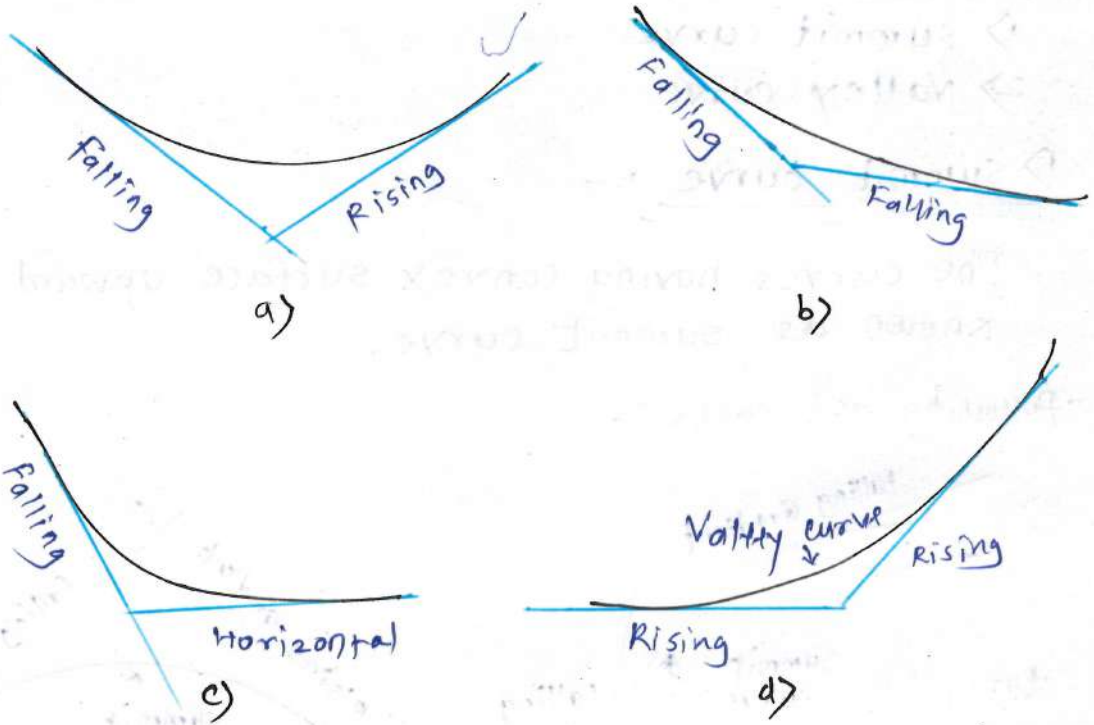 Falling
Rising
a)
Falling
Falling
b)
Falling
Horizontal
c)
Valley curve
Rising
Rising
d)